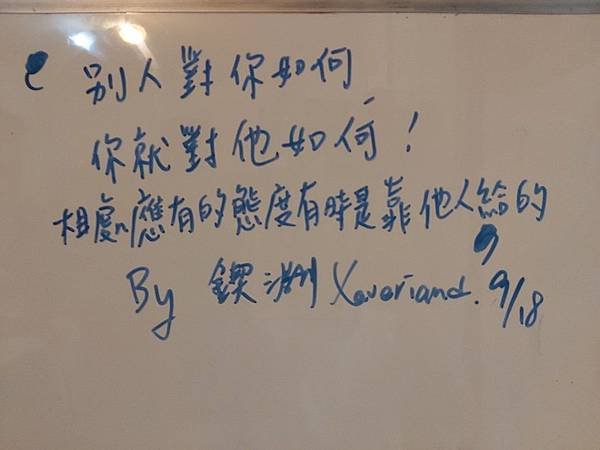 別人對你如何
你就對他如何!
相處應有的態度有時是靠他人給的
By 鍥 9/18